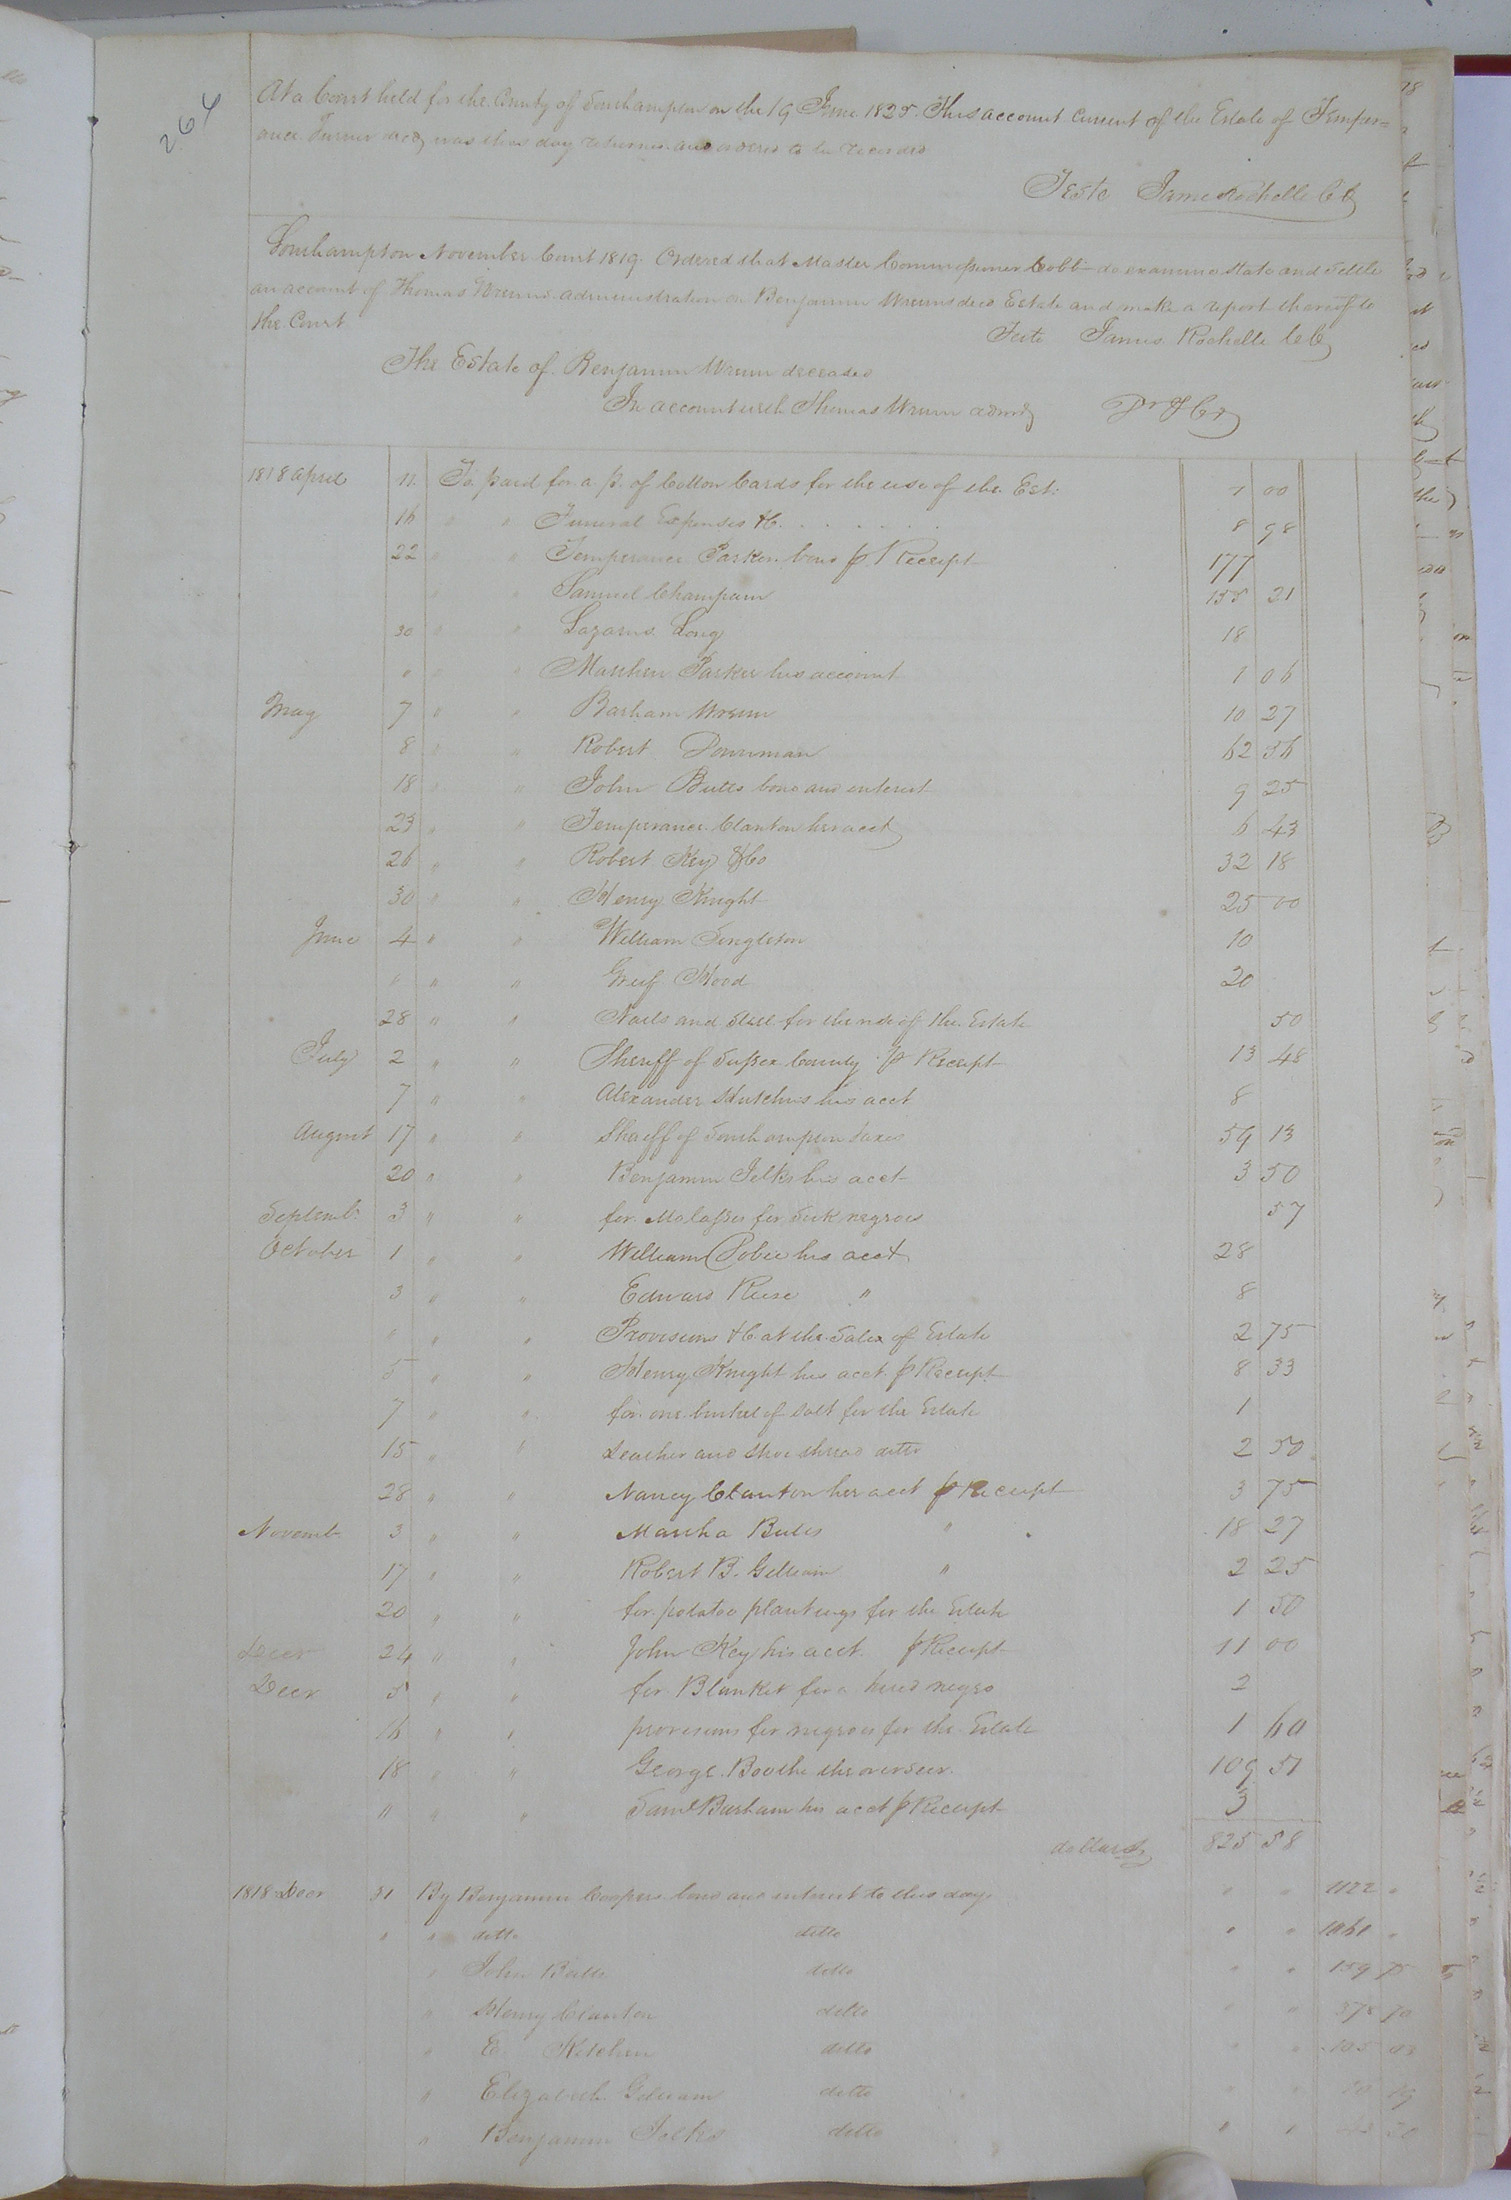 264
At a Court held for the County of Southampton on the 19 June 1825. This account Current of the Estate of Temper=
ance Turner decd, was this day returned and ordered to be recorded
Teste James Rochelle CC
Southampton November Court 1819. Ordered that Master Commissioner Cobb do examine state and settle
an account of Thomas Wrenns administration on Benjamin Wrenns decd Estate and make a report thereof to
the Court
Teste James Rochelle CC
The Estate of Benjamin Wrenn deceased
In account with Thomas Wrenn admr Dr & Cr
1818 april 11. To paid for a p. of Cotton Cards for the use of the Est: 1 00
16 " " Funeral Expenses &C. . . . . . . 8 98
22 " " Temperance Parker bond p Receipt 177
" " Samuel Champain 155 21
30 " " Lazarus Long 18
" " " Matthew Parker his account 1 06
May 7 " " Barham Wrenn 10 27
8 " " Robert 62 56
18 " " John Butts bond and interest 9 25
23 " " Temperance Clanton her acct 6 43
26 " " Robert Key & Co 32 18
30 " " Henry Knight 25 00
June 4 " " William Singleton 10
" " " Greif Wood 20
28 " " Nails and Steel for the use of the Estate 50
July 2 " " Sheriff of Sussex County p Receipt 13 48
7 " " Alexander his acct 8
August 17 " " Sheriff of Southampton Taxes 59 13
20 " " Benjamin Jelks his acct 3 50
Septemb. 3 " " for Molasses for Sick negroes 57
October 1 " " William his acct 28
3 " " Edward " 8
" " " Provisions &C at the Sales of Estate 2 75
5 " " Henry Knight his acct p Receipt 8 33
7 " " for one bushel of Salt for the Estate 1
15 " " Leather and Shoe thread ditto 2 50
28 " " Nancy Clanton her acct p Receipt 3 75
Novemb. 3 " " Martha Butts " 18 27
17 " " Robert B. Gilliam " 2 25
20 " " for potatoe plantings for the Estate 1 50
Decr 24 " " John Key his acct p Receipt 11 00
Decr 5 " " for Blanket for a hired negro 2
16 " " provisions for negroes for the Estate 1 60
18 " " George Boothe the overseer. 109 51
" " " Saml Barham his acct p Receipt 3
dollars 825 58
1818 Decr 31 By Benjamin Coopers bond and interest to this day. " " 1122 "
" " ditto ditto " " 1061 "
" John Butts ditto " " 159 75
" Henry Clanton ditto " "
" E. Kitchen ditto " " 105
" Elizabeth Gilliam ditto " "
" Benjamin Jelks ditto " "